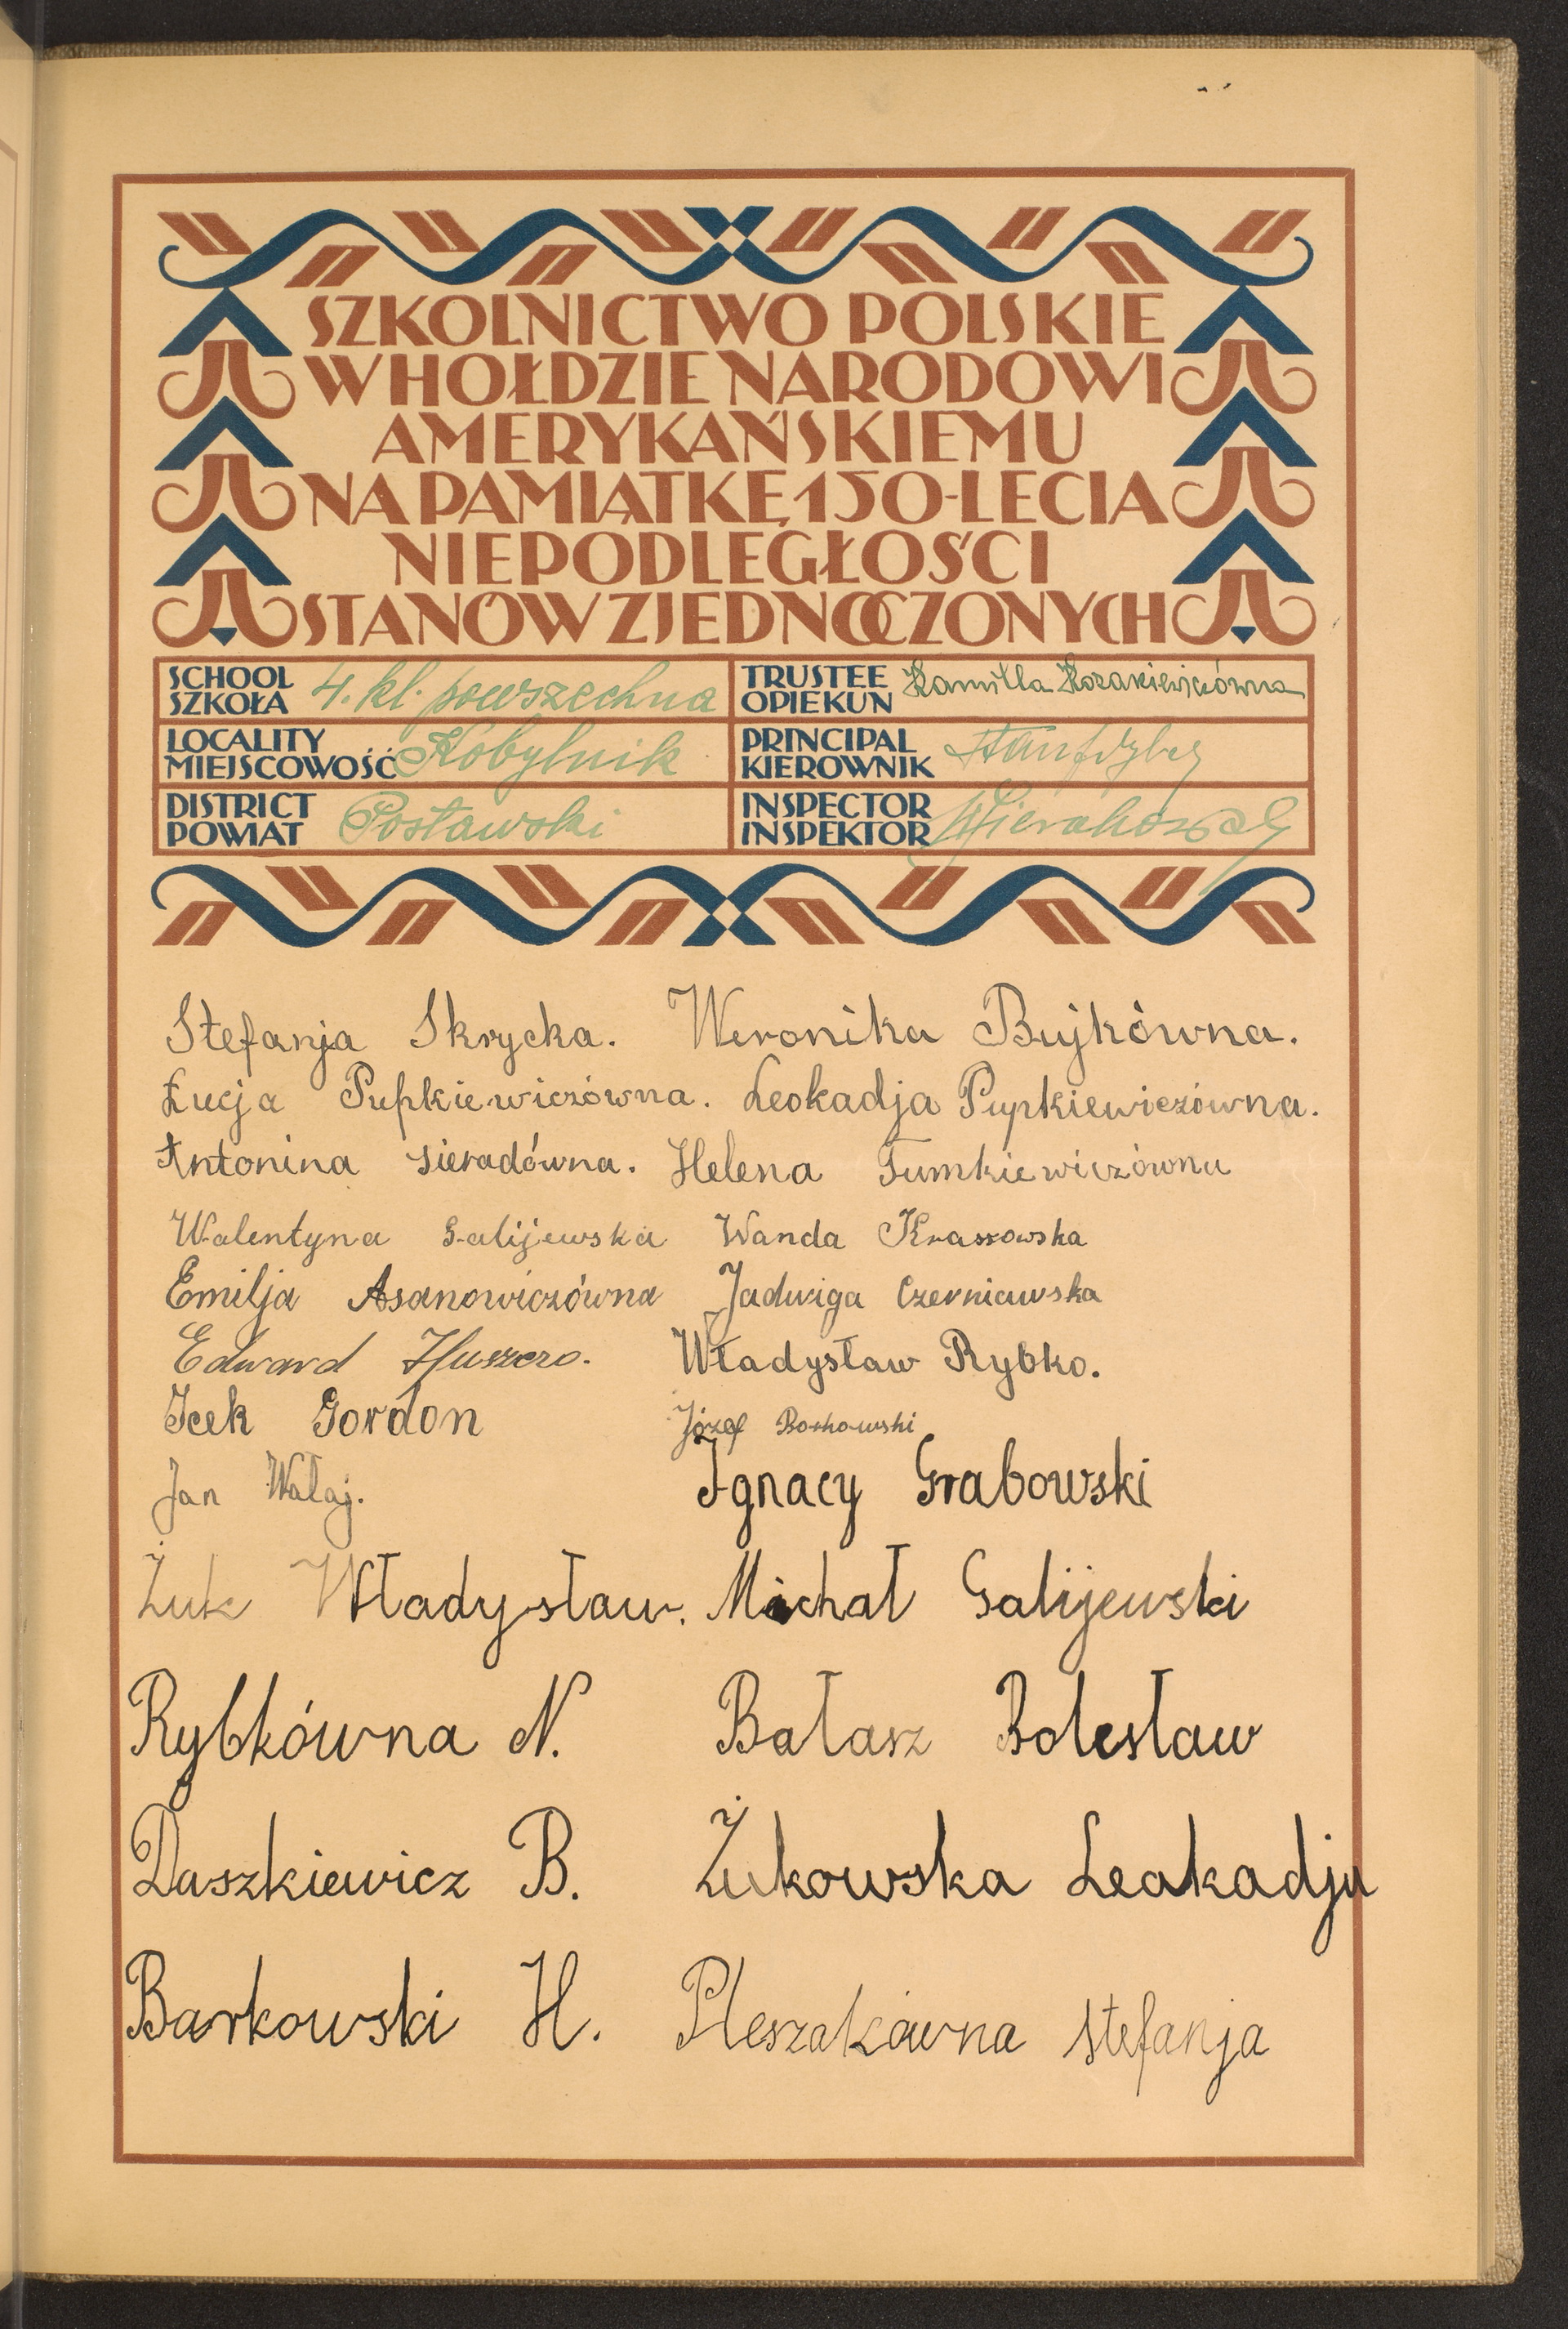 SZKOLNICTWO POLSKIE
W HOŁDZIE NARODOWI
AMERYKAŃSKIEMU
NA PAMIĄTKĘ 150-LECIA
NIEPODLEGŁOŚCI
STANÓW ZJEDNOCZONYCH
SCHOOL
SZKOŁA 4. kl. powszechna
TRUSTEE
OPIEKUN Kamilla Kozakiewiczówna
LOCALITY
MIEJSCOWOŚĆ Kobylnik
PRINCIPAL
KIEROWNIK
DISTRICT
POWIAT Postawski
INSPECTOR
INSPEKTOR
Stefanja Skrycka. Weronika Bujkówna.
Łucja Pupkiewiczówna. Leokadja Pupkiewiczówna.
Antonina Sieradówna. Helena Tumkiewiczówna
Walentyna Galijewska Wanda Krassowska
Emilja Asanowiczówna Jadwiga Czerniawska
Edward Huszczo. Władysław Rybko.
Icek Gordon Józef Borkowski
Jan Wałaj. Ignacy Grabowski
Żuk Władysław. Michał Galijewski
Rybkówna N. Bałasz Bolesław
Daszkiewicz B. Żukowska Leakadja
Barkowski H. Pleszakówna Stefanja